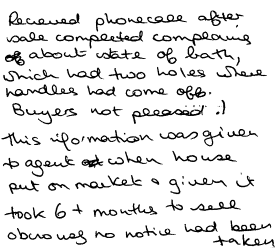 Recieved phonecall after
sale completed complaining
about state of bath,
which had two holes where
handles had come off.
Buyers not pleased!
This information was given
to agent when house
put on market & given it
took 6+ months to sell
obvious no notice had been
taken